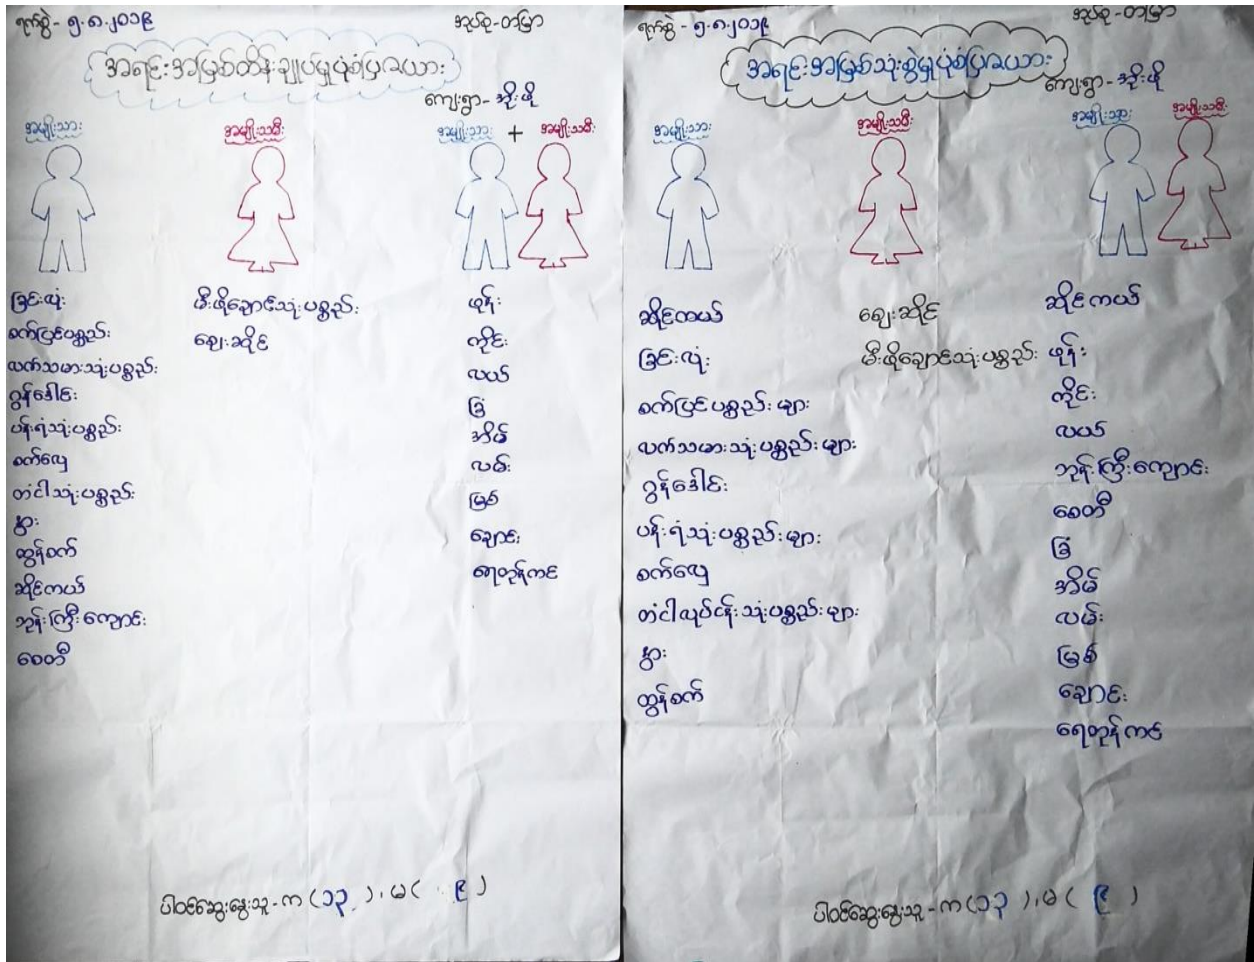 ရက်စွဲ - ၅.၈.၂၀၁၉
အုပ်စု - တမြာ
အရင်းအမြစ်ထိန်းချုပ်မှုပုံစံပြဇယား
ကျေးရွာ - အိုးဖို
အမျိုးသား
အမျိုးသမီး
အမျိုးသား + အမျိုးသမီး
ခြင်းလုံး
စက်ပြင်ပစ္စည်း
လက်သမားသုံးပစ္စည်း
ဂွန်ဒေါင်း
ပန်းရံသုံးပစ္စည်း
စက်လှေ
တံငါသုံးပစ္စည်း
နွား
ထွန်စက်
ဆိုင်ကယ်
ဘုန်းကြီးကျောင်း
စေတီ
မီးဖိုချောင်သုံးပစ္စည်း
ဈေးဆိုင်
ဖုန်း
ကိုင်း
လယ်
ခြံ
အိမ်
လမ်း
မြစ်
ချောင်း
ရေတုန်ကင်
ပါဝင်ဆွေးနွေးသူ - က (၁၃) ၊ မ ( ၉ )
ရက်စွဲ - ၅.၈.၂၀၁၉
အုပ်စု - တမြာ
အရင်းအမြစ်သုံးစွဲမှုပုံစံပြဇယား
ကျေးရွာ - အိုးဖို
အမျိုးသား
အမျိုးသမီး
အမျိုးသား
အမျိုးသမီး
ဆိုင်ကယ်
ခြင်းလုံး
စက်ပြင်ပစ္စည်းများ
လက်သမားသုံးပစ္စည်းများ
ဂွန်ဒေါင်း
ပန်းရံသုံးပစ္စည်းများ
စက်လှေ
တံငါလုပ်ငန်းသုံးပစ္စည်းများ
နွား
ထွန်စက်
ဈေးဆိုင်
မီးဖိုချောင်သုံးပစ္စည်း
ဆိုင်ကယ်
ဖုန်း
ကိုင်း
လယ်
ဘုန်းကြီးကျောင်း
စေတီ
ခြံ
အိမ်
လမ်း
မြစ်
ချောင်း
ရေတုန်ကင်
ပါဝင်ဆွေးနွေးသူ - က (၁၃) ၊ မ ( ၉ )